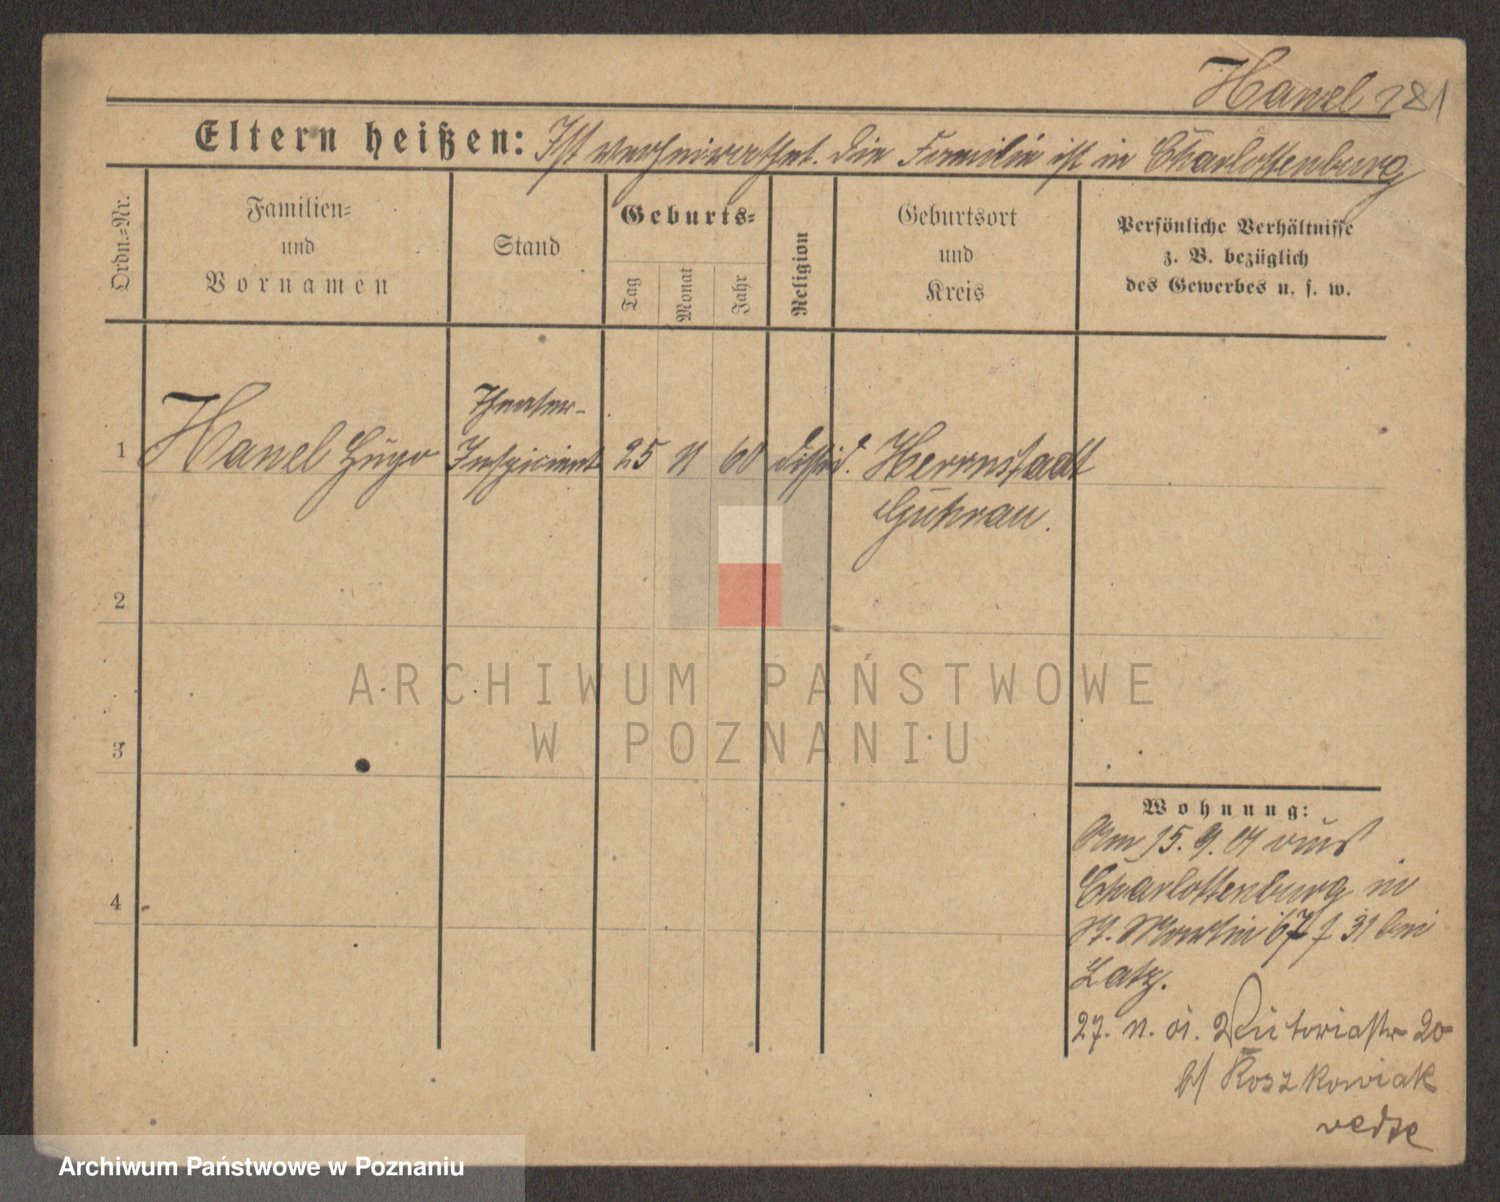 Hanel 281
Eltern heißen: Ist verheirathet. Die Familie ist in Charlottenburg
Ordn.-Nr.
Familien-
und
Vornamen
Stand
Geburts-
Tag
Monat
Jahr
Religion
Geburtsort
und
Kreis
Persönliche Verhältnisse
z. B. bezüglich
des Gewerbes u. s. w.
Theater-
1 Hanel Hugo Inspicient 25 11 60 dissid. Herrnstadt
Guhrau.
2
ARCHIWUM PAŃSTWOWE
W POZNANIU
3
Wohnung:
Am 15. 9. 01 aus
Charlottenburg in
4
St. Martin 67 f 31 bei
Latz.
27. 11. 01. Victoriastr 20
b/ Koszkowiak
Archiwum Państwowe w Poznaniu